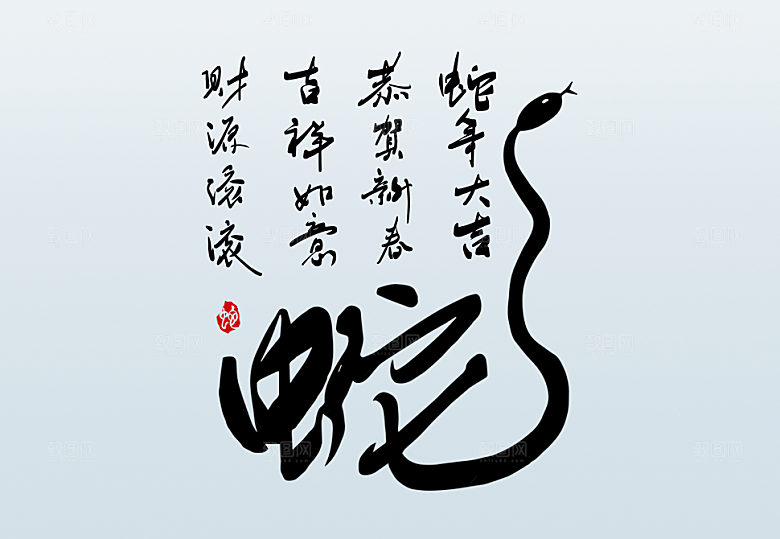 蛇年大吉
恭贺新春
吉祥如意
财源滚滚
蛇
蛇